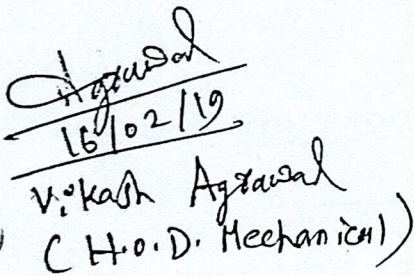 Agrawal
16/02/19
Vikash Agrawal
(H.O.D. Mechanical)